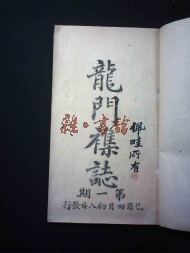 龍門雜誌
第一期
己酉四月初八日發行
佩畦所有